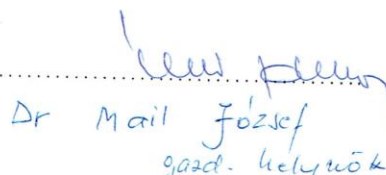 Dr Mail József
gazd. helynök